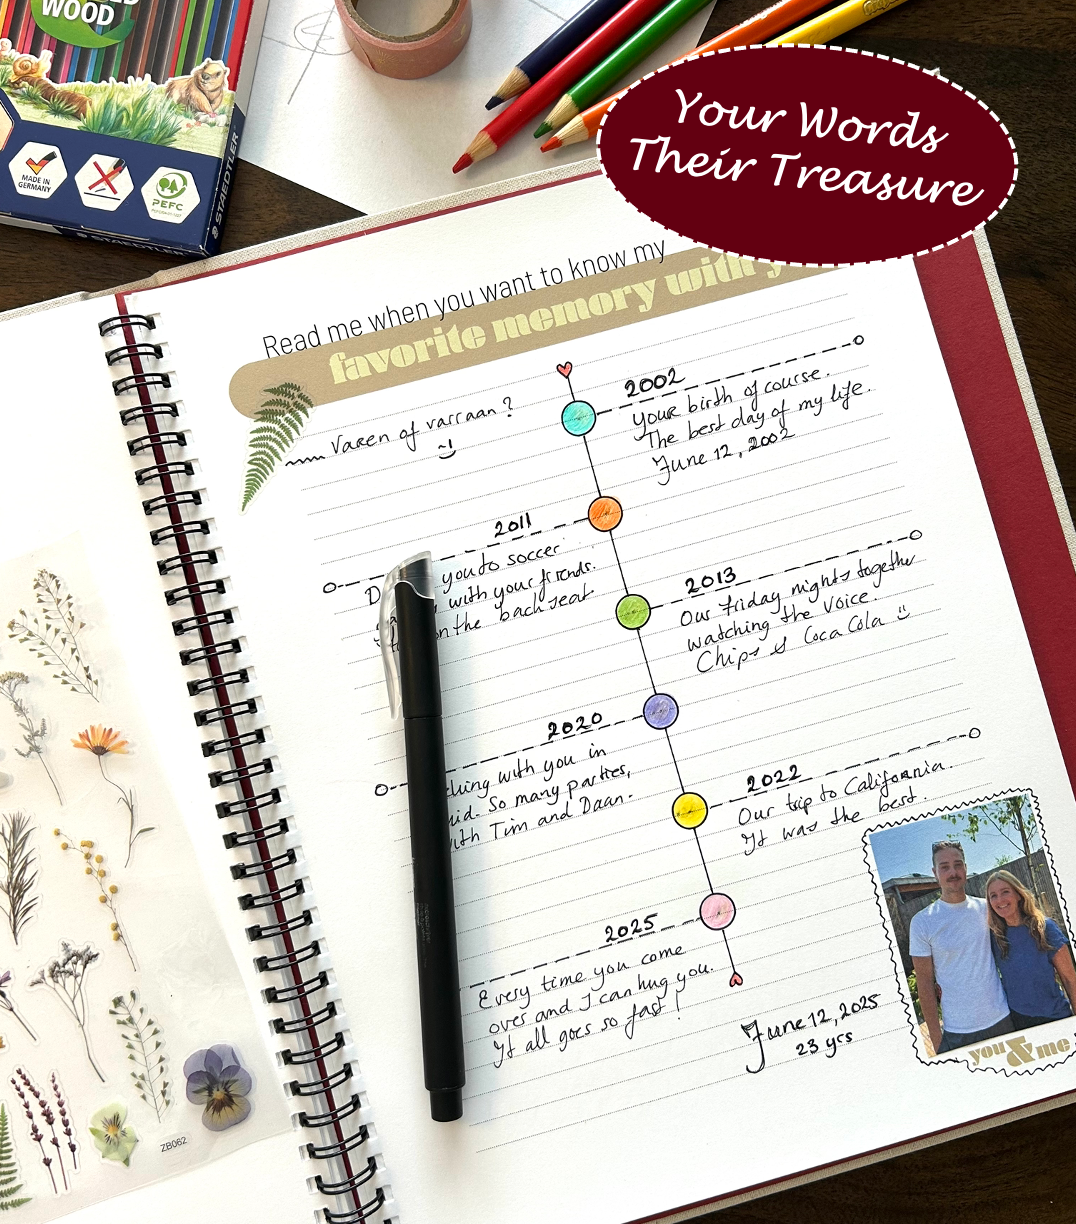 WOOD
MADE IN
GERMANY
PEFC
STAEDTLER
STAEDTLER
Your Words
Their Treasure
Read me when you want to know my
favorite memory with y
Varen of varraan ?
2002
Your birth of course.
The best day of my life.
June 12, 2002
2011
you to soccer
with your friends.
on the back seat
2013
Our Friday nights together
watching the Voice.
Chips & Coca Cola
2020
with you in
So many parties,
with Tim and Daan.
2022
Our trip to California.
It was the best.
2025
Every time you come
over and I can hug you.
It all goes so fast!
June 12, 2025
23 yrs
you & me
ZB062